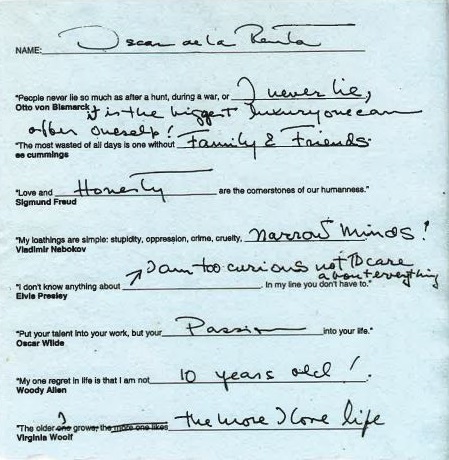 NAME: Oscar de la Renta
"People never lie so much as after a hunt, during a war, or I never lie,
Otto von Bismarck it is the biggest luxury one can
offer oneself!
"The most wasted of all days is one without Family & Friends."
ee cummings
"Love and Honesty are the cornerstones of our humanness."
Sigmund Freud
"My loathings are simple: stupidity, oppression, crime, cruelty, narrow minds!
Vladimir Nabokov
I am too curious not to care
about everything
"I don't know anything about . In my line you don't have to."
Elvis Presley
"Put your talent into your work, but your Passion into your life."
Oscar Wilde
"My one regret in life is that I am not 10 years old!.
Woody Allen
"The older one I grows, the more one likes the more I love life
Virginia Woolf